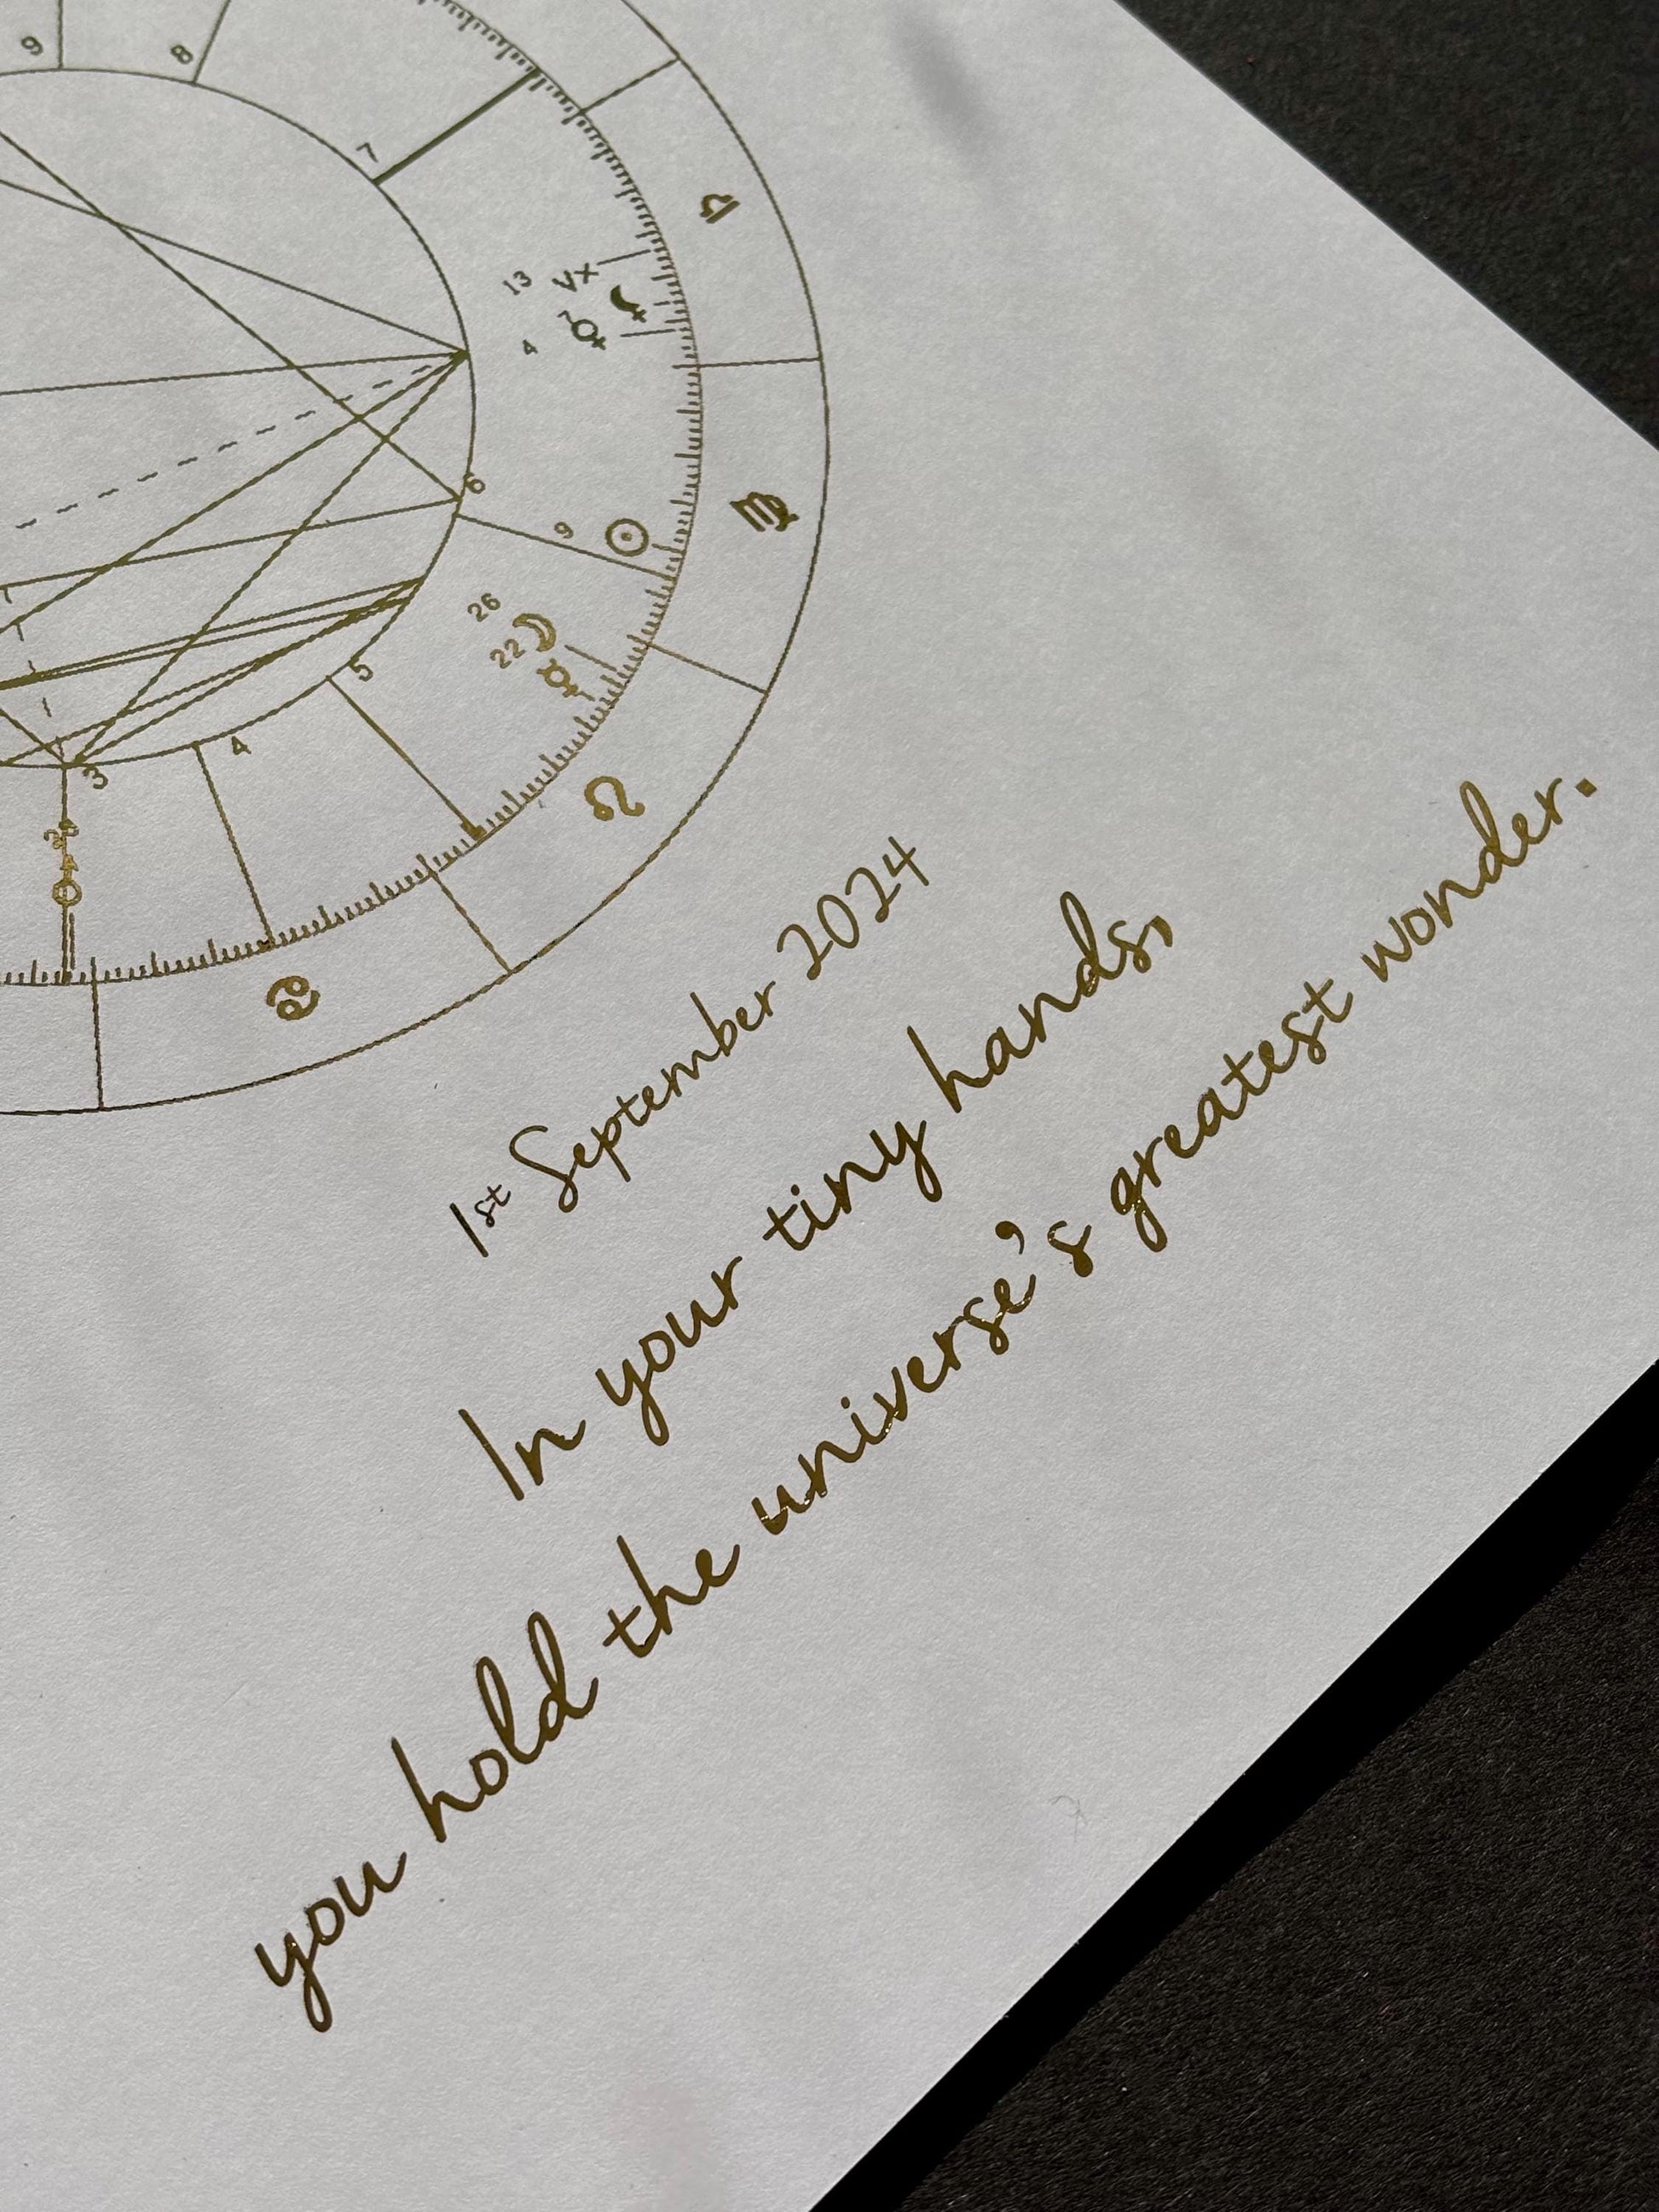 9
8
7
13 Vx
4
6
9
26
22
5
4
3
1st September 2024
In your tiny hands,
you hold the universe's greatest wonder.